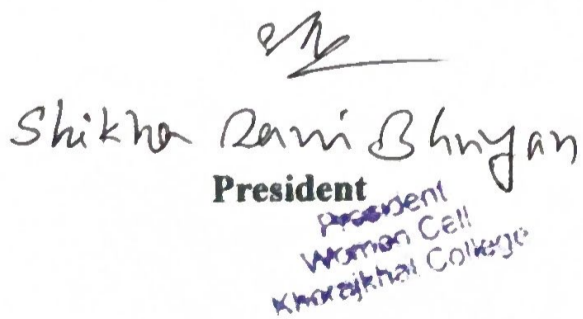 Shikha Rani Bhuyan
President
President
Women Cell
Khorajkhal College